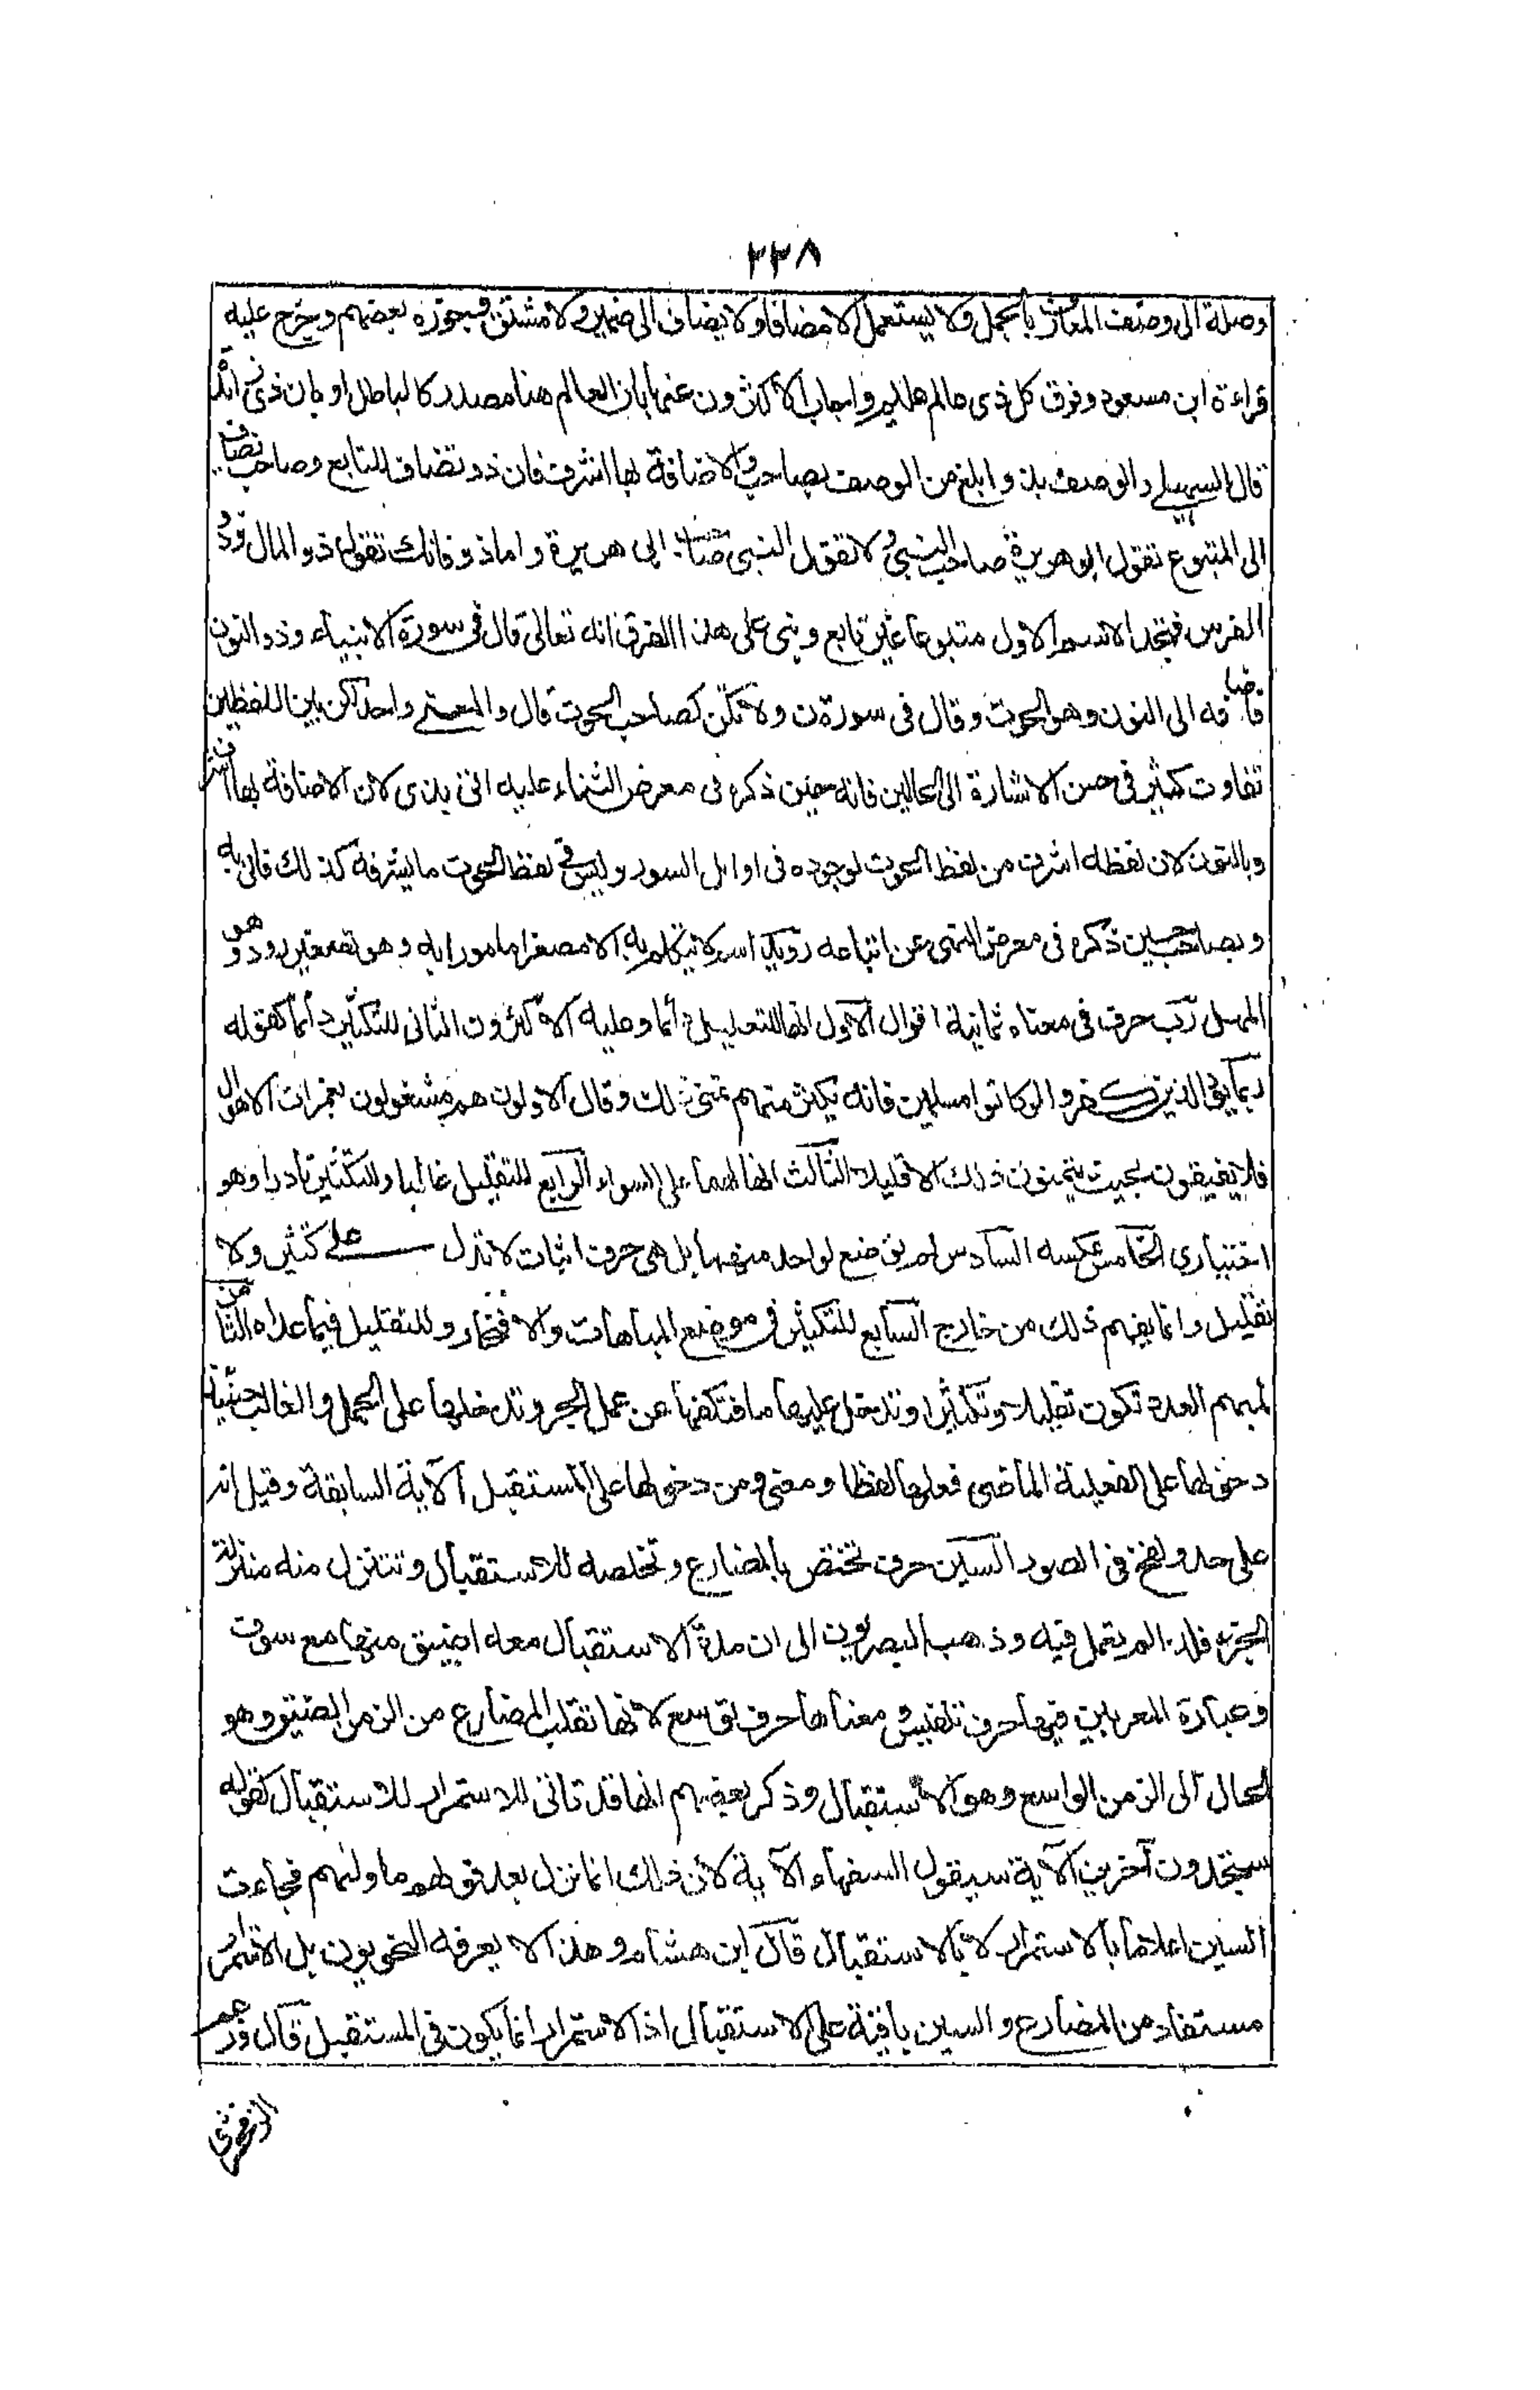 ٢٣٨
وصلة الى وصف المعارف بالجمل ولا يستعمل الا مضافا ولا يضاف الى ضمير ولا مشتق وجوزه بعضهم وخرج عليه
قراءة ابن مسعود وفوق كل ذى عالم عليم واجاب الاكثرون عنها بان العالم هنا مصدر كالباطل او بان ذى زائدة
قال السهيلى والوصف بذو ابلغ من الوصف بصاحب والاضافة بها اشرف فان ذو تضاف للتابع وصاحب تضاف
الى المتبوع تقول ابو هريرة صاحب النبى ولا تقول النبى صاحب ابى هريرة واما ذو فانك تقول ذو المال وذو
الفرس فتجد الاسم الاول متبوعا غير تابع وبنى على هذا الفرق انه تعالى قال فى سورة الانبياء وذو النون
فاضافه الى النون وهو الحوت وقال فى سورة ن ولا تكن كصاحب الحوت قال والمعنى واحد لكن بين اللفظين
تفاوت كثير فى حسن الاشارة الى الحالين فانه حين ذكره فى معرض الثناء عليه اتى بذى لان الاضافة بها اشرف
وبالنون لان لفظه اشرف من لفظ الحوت لوجوده فى اوايل السور وليس فى لفظ الحوت ما يشرفه كذلك فاتى به
وبصاحب حين ذكره فى معرض النهى عن اتباعه رويد اسم لا يتكلم به الا مصغرا مامورا به وهو تصغير رود وهو
المهل رب حرف فى معناه ثمانية اقوال الاول انها للتقليل دائما وعليه الاكثرون الثانى للتكثير دائما كقوله
ربما يود الذين كفروا لو كانوا مسلمين فانه يكثر منهم تمنى ذلك وقال الاولون هم مشغولون بغمرات الاهوال
فلا يفيقون بحيث يتمنون ذلك الا قليلا الثالث انها لهما على السواء الرابع للتقليل غالبا وللتكثير نادرا وهو
اختيارى الخامس عكسه السادس لم يوضع لواحد منهما بل هى حرف اثبات لا تدل على تكثير ولا
تقليل وانما يفهم ذلك من خارج السابع للتكثير فى موضع المباهات والافتخار وللتقليل فيما عداه الثامن
لمبهم العدد تكون تقليلا وتكثيرا وتدخل عليها ما فتكفها عن عمل الجر وتدخلها على الجمل والغالب حينئذ
دخولها على الفعلية الماضى فعلها لفظا ومعنى ومن دخولها على المستقبل الآية السابقة وقيل انه
على حد ونفخ فى الصور السين حرف تختص بالمضارع وتخلصه للاستقبال وتتنزل منه منزلة
الجزء فلذا لم يعمل فيه وذهب البصريون الى ان مدة الاستقبال معه اضيق منها مع سوف
وعبارة المعربين فيها حرف تنفيس ومعناها حرف توسع لانها تقلب المضارع من الزمن الضيق وهو
الحال الى الزمن الواسع وهو الاستقبال وذكر بعضهم انها قد تاتى للاستمرار للاستقبال كقوله
ستجدون آخرين الآية سيقول السفهاء الآية لان ذلك انما نزل بعد قولهم ما ولىهم فجاءت
السين اعلاما بالاستمرار لا بالاستقبال قال ابن هشام وهذا لا يعرفه النحويون بل الاستمرار
مستفاد من المضارع والسين باقية على الاستقبال اذ الاستمرار انما يكون فى المستقبل قال وزعم
الزمخشرى